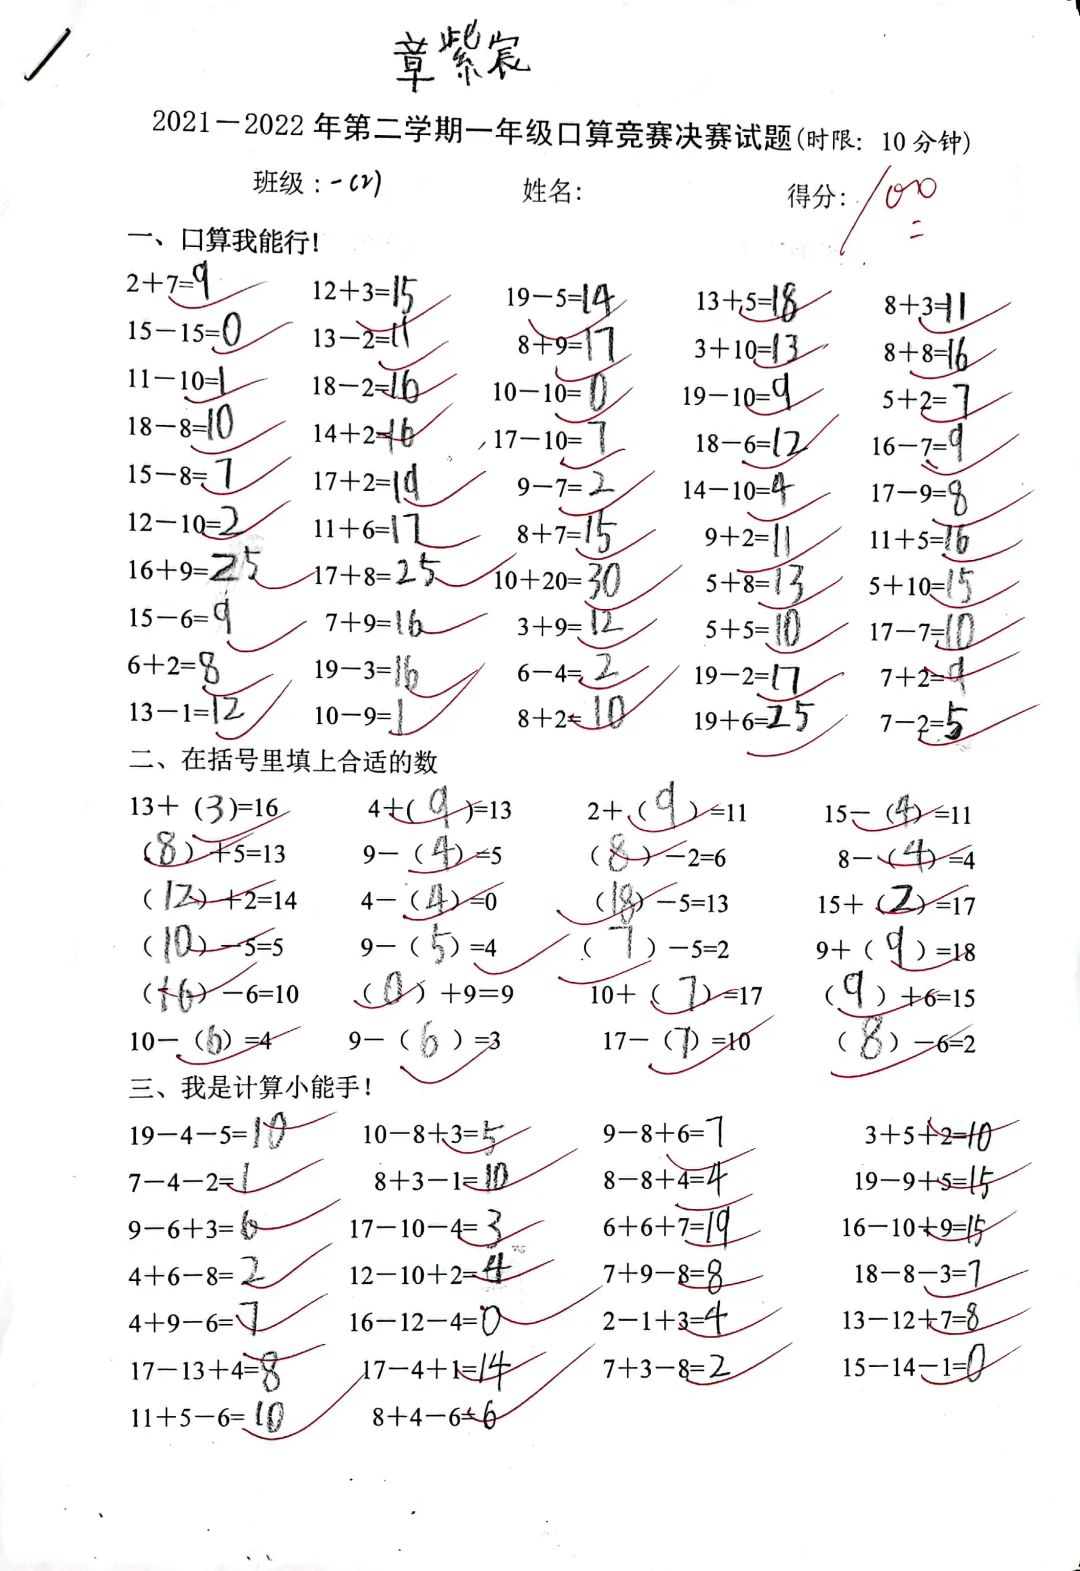 章紫宸
2021－2022年第二学期一年级口算竞赛决赛试题(时限：10分钟)
班级：一(2) 姓名： 得分：100
一、口算我能行！
2＋7=9 12＋3=15 19－5=14 13＋5=18 8＋3=11
15－15=0 13－2=11 8＋9=17 3＋10=13 8＋8=16
11－10=1 18－2=16 10－10=0 19－10=9 5＋2=7
18－8=10 14＋2=16 17－10=7 18－6=12 16－7=9
15－8=7 17＋2=19 9－7=2 14－10=4 17－9=8
12－10=2 11＋6=17 8＋7=15 9＋2=11 11＋5=16
16＋9=25 17＋8=25 10＋20=30 5＋8=13 5＋10=15
15－6=9 7＋9=16 3＋9=12 5＋5=10 17－7=10
6＋2=8 19－3=16 6－4=2 19－2=17 7＋2=9
13－1=12 10－9=1 8＋2=10 19＋6=25 7－2=5
二、在括号里填上合适的数
13＋（3）=16 4＋（9）=13 2＋（9）=11 15－（4）=11
（8）＋5=13 9－（4）=5 （8）－2=6 8－（4）=4
（12）＋2=14 4－（4）=0 （18）－5=13 15＋（2）=17
（10）－5=5 9－（5）=4 （7）－5=2 9＋（9）=18
（16）－6=10 （0）＋9=9 10＋（7）=17 （9）＋6=15
10－（6）=4 9－（6）=3 17－（7）=10 （8）－6=2
三、我是计算小能手！
19－4－5=10 10－8＋3=5 9－8＋6=7 3＋5＋2=10
7－4－2=1 8＋3－1=10 8－8＋4=4 19－9＋5=15
9－6＋3=6 17－10－4=3 6＋6＋7=19 16－10＋9=15
4＋6－8=2 12－10＋2=4 7＋9－8=8 18－8－3=7
4＋9－6=7 16－12－4=0 2－1＋3=4 13－12＋7=8
17－13＋4=8 17－4＋1=14 7＋3－8=2 15－14－1=0
11＋5－6=10 8＋4－6=6